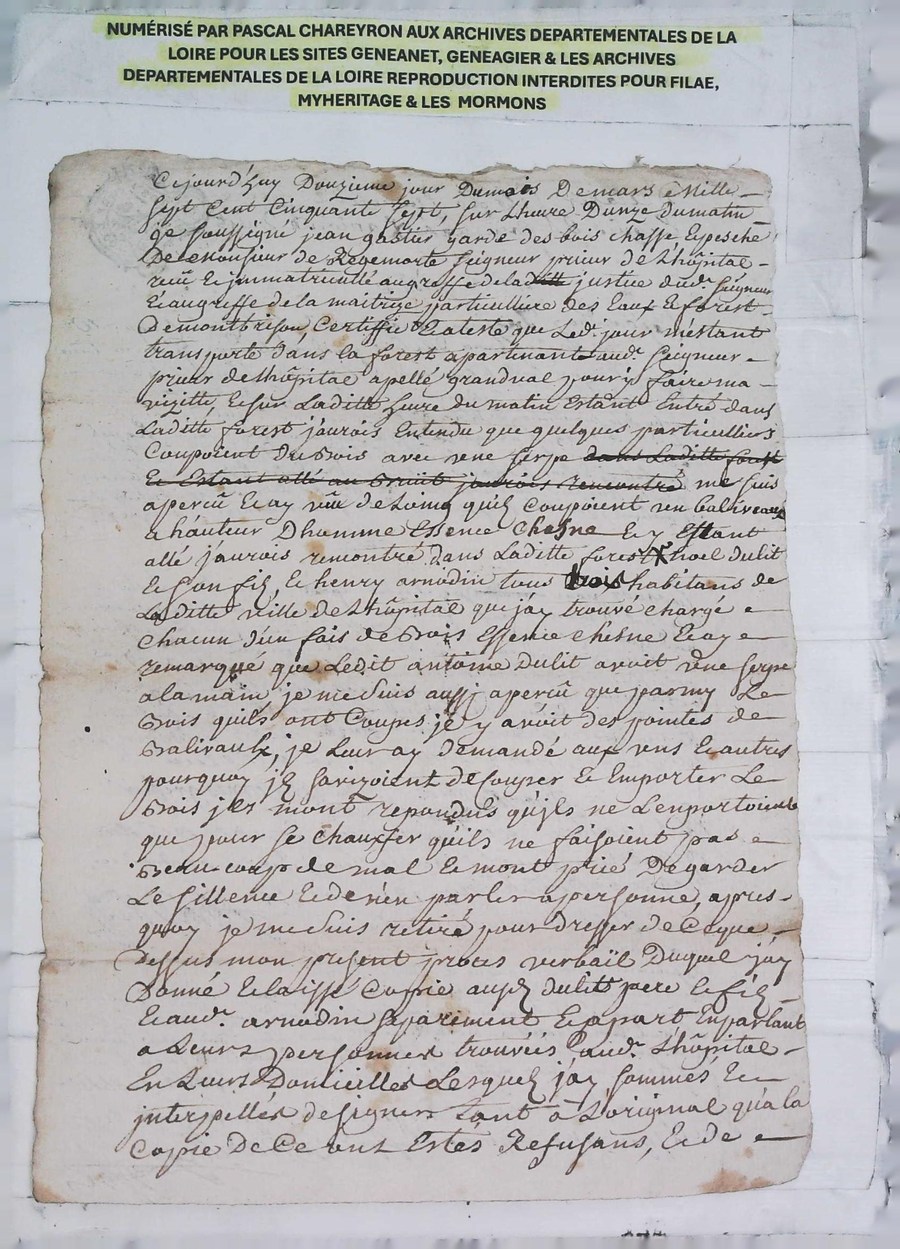 NUMÉRISÉ PAR PASCAL CHAREYRON AUX ARCHIVES DEPARTEMENTALES DE LA
LOIRE POUR LES SITES GENEANET, GENEAGIER & LES ARCHIVES
DEPARTEMENTALES DE LA LOIRE REPRODUCTION INTERDITES POUR FILAE,
MYHERITAGE & LES MORMONS
Cejourd'huy Douzieme jour Dumois Demars Mille
sept Cent Cinquante sept, sur Lheure Dunze dumatin
je soussigné jean gastier garde des bois chasse & pesche
De Monsieur de Revemorte seigneur prieur de L'hôpital
recû & jmmatriculé augreffe dela ditte justice dud. seigneur
& augreffe de la maitrize particulliere des Eaux & forest
Demontbrison, Certiffie & ateste que Led. jour mestant
transporté dans la forest apartenante aud. seigneur
prieur de Lhôpital apellé grandval pour y faire ma
vizitte, & sur Laditte heure du matin Estant Entré dans
Laditte forest j'aurois Entendu que quelques particulliers
Coupoient Du Bois avec une serpe dans Laditte forest
& Estant allé au Bruit jaurois rencontré me suis
apercû & ay vû de Loing qu'il coupoient un baliveaux
a hauteur Dhomme Essence chesne & y Estant
allé j'aurois rencontré dans Laditte forest noel dulit
& son fils & henry arnodin tous trois habitans de
Laditte ville de Lhôpital que j'ay trouvé chargé
chacun d'un fais de Bois Essence chesne & ay
remarqué que Ledit antoine dulit avoit une serpe
a la main je me suis aussi apercû que parmy Le
Bois quils ont Coupés je y avoit des pointes de
Balivaux, je Leur ay demandé aux uns & autres
pourquoy js savizoient de Couper & Emporter Le
Bois jls mont repondus qu'ils ne Lenportoient
que pour se chauffer qu'ils ne faisoient pas
Beau-coup de mal & mont prié De garder
Le sillence & de rien parler a personne, apres
quoy je me suis retiré pour dresser de Ce que
Dessus mon present proces verbail Duquel j'ay
Donné & laissé Copie auxd. dulit pere & fils
& aud. arnodin separement & appart En parlant
a Leurs personnes trouvées aud. Lhôpital
En Leurs Domicilles Lesquels j'ay sommés &
interpellés de signer tant a Loriginal qu'a la
Copie De Ce ont Estés Refusans, & de